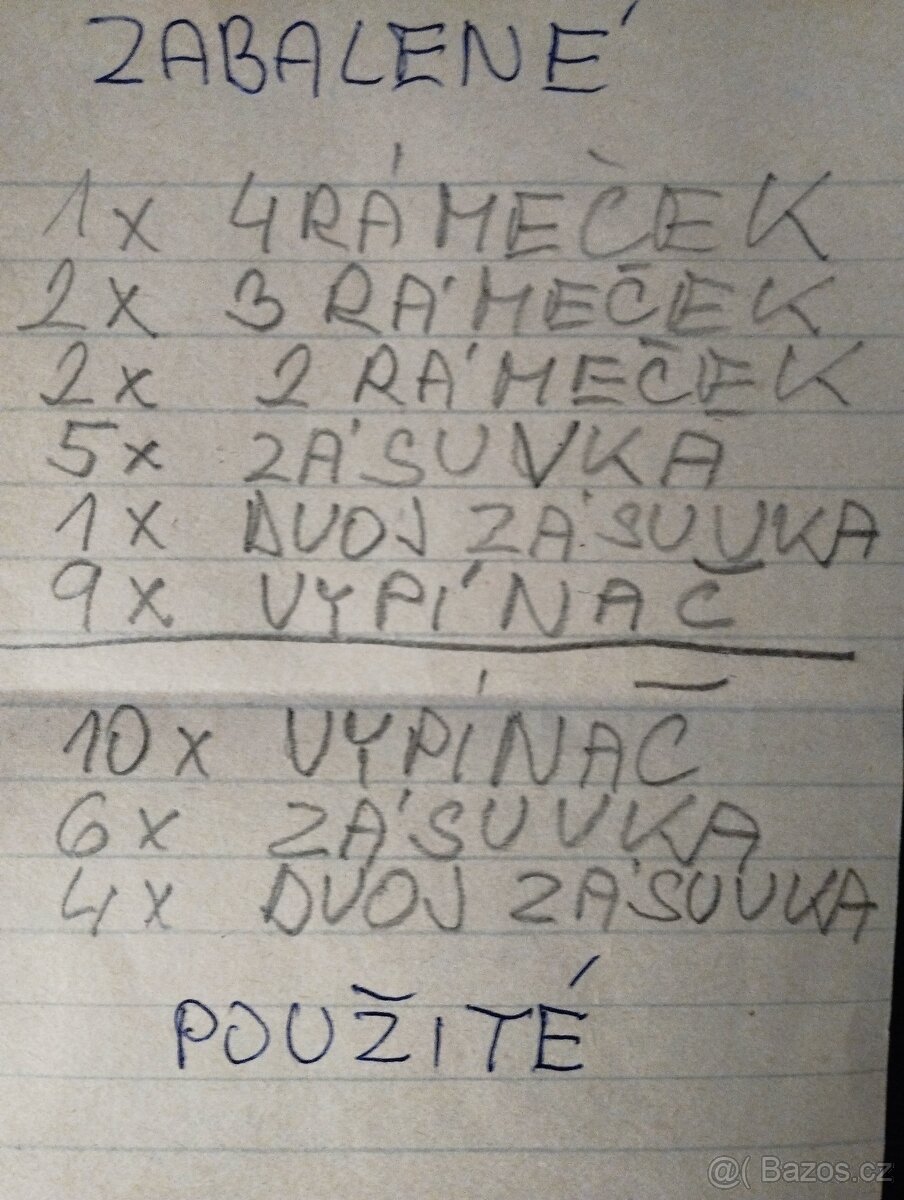 ZABALENÉ
1x 4 RÁMEČEK
2x 3 RÁMEČEK
2x 2 RÁMEČEK
5x ZÁSUVKA
1x DVOJ ZÁSUVKA
9x VYPÍNAČ
10x VYPÍNAČ
6x ZÁSUVKA
4x DVOJ ZÁSUVKA
POUŽITÉ
@( Bazos.cz